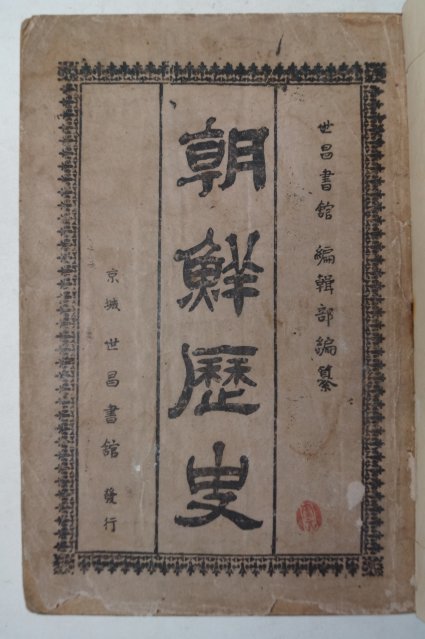 世昌書館 編輯部編纂
朝鮮歷史
京城世昌書館 發行